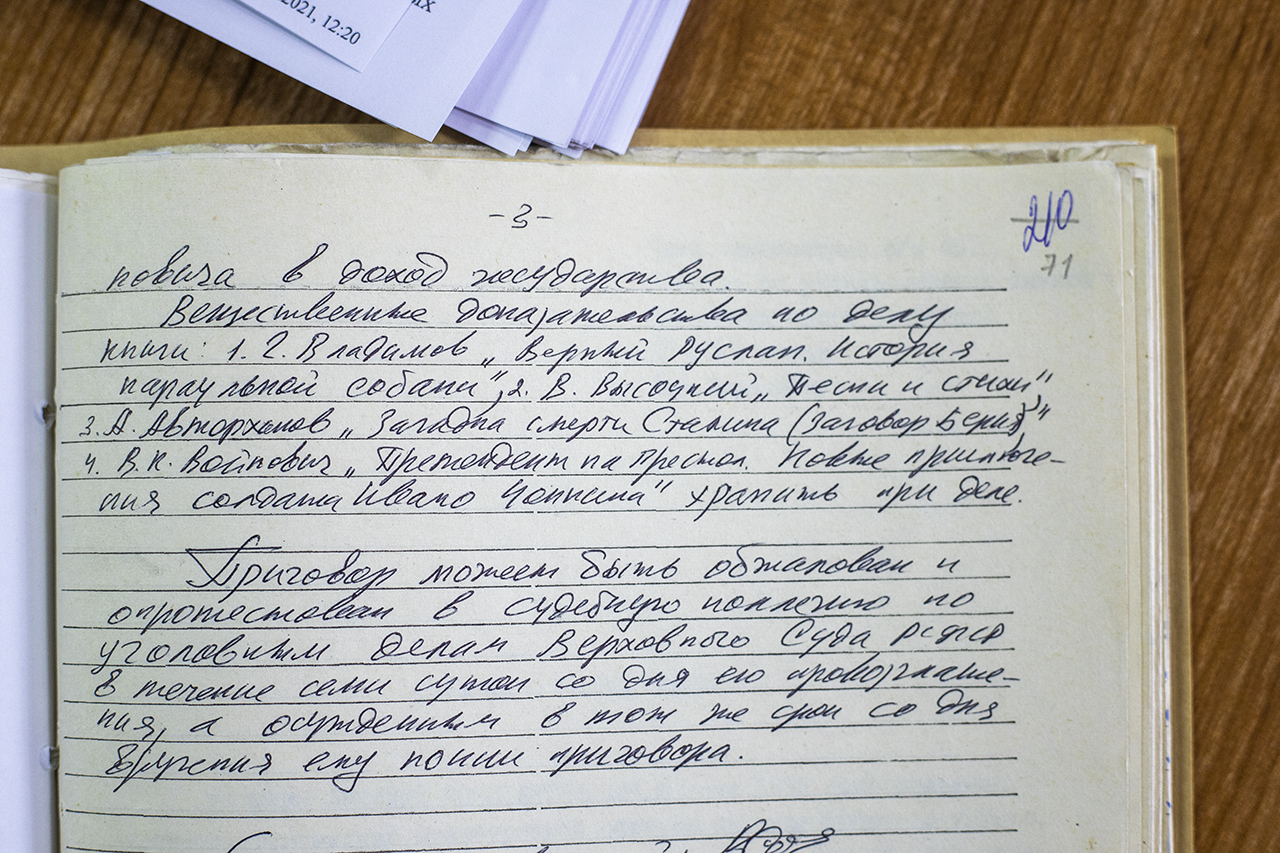 2021, 12:20
-3-
210
71
новича в доход государства.
Вещественные доказательства по делу
книги: 1. Г. Владимов „Верный Руслан. История
караульной собаки", 2. В. Высоцкий „Песни и стихи"
3. А. Авторханов „Загадка смерти Сталина (Заговор Берия)"
4. В.Н. Войнович „Претендент на престол. Новые приключе-
ния солдата Ивана Чонкина" хранить при деле.
Приговор может быть обжалован и
опротестован в судебную коллегию по
уголовным делам Верховного Суда РСФСР
в течение семи суток со дня его провозглаше-
ния, а осужденным в тот же срок со дня
вручения ему копии приговора.